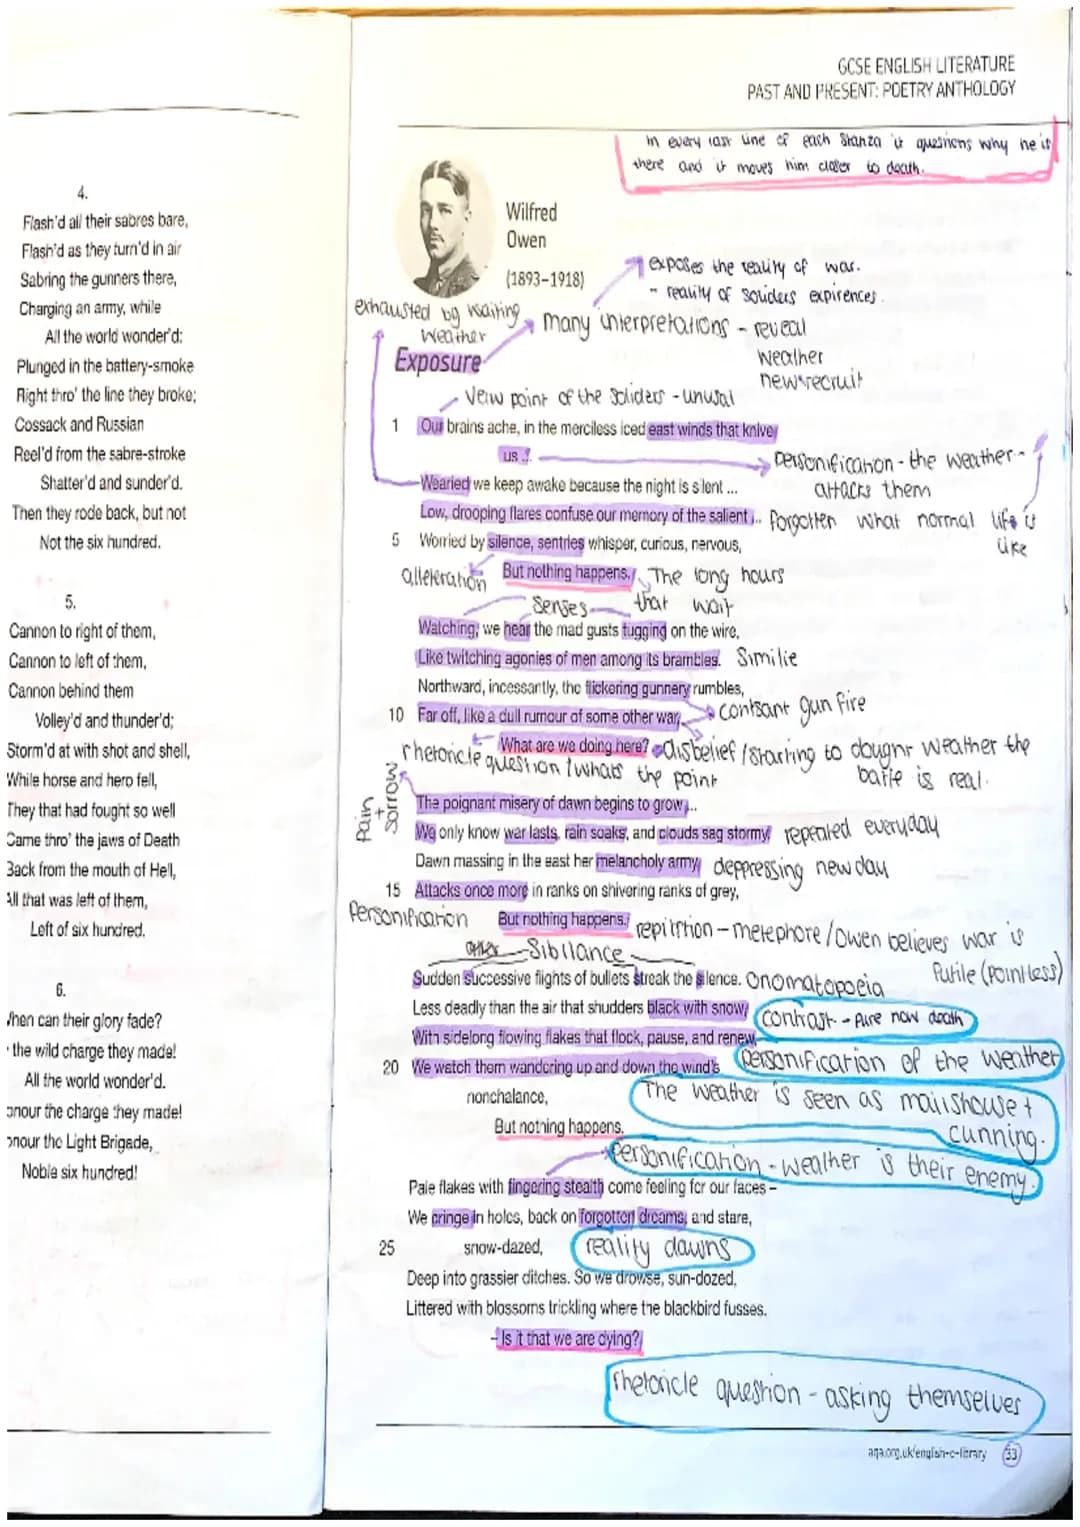 4.
Flash'd all their sabres bare,
Flash'd as they turn'd in air
Sabring the gunners there,
Charging an army, while
All the world wonder'd:
Plunged in the battery-smoke
Right thro' the line they broke;
Cossack and Russian
Reel'd from the sabre-stroke
Shatter'd and sunder'd.
Then they rode back, but not
Not the six hundred.
5.
Cannon to right of them,
Cannon to left of them,
Cannon behind them
Volley'd and thunder'd;
Storm'd at with shot and shell,
While horse and hero fell,
They that had fought so well
Came thro' the jaws of Death
Back from the mouth of Hell,
All that was left of them,
Left of six hundred.
6.
When can their glory fade?
the wild charge they made!
All the world wonder'd.
onour the charge they made!
onour the Light Brigade,
Noble six hundred!
GCSE ENGLISH LITERATURE
PAST AND PRESENT: POETRY ANTHOLOGY
In every last line of each stanza it questions why he is
there and it moves him closer to death.
Wilfred
Owen
(1893–1918)
exposes the reality of war.
- reality of soliders expirences.
exhausted by waiting
weather
many interpretations - reveal
weather
new recruit
Exposure
View point of the soliders - unusal
1 Our brains ache, in the merciless iced east winds that knive
us ...
personification - the weather
attacks them
Wearied we keep awake because the night is silent ...
Low, drooping flares confuse our memory of the salient ...
forgotten what normal life is
like
5 Worried by silence, sentries whisper, curious, nervous,
alleteration
But nothing happens.
The long hours
that wait
Senses
Watching, we hear the mad gusts tugging on the wire,
Like twitching agonies of men among its brambles. Similie
Northward, incessantly, the flickering gunnery rumbles,
contsant gun fire
10 Far off, like a dull rumour of some other war,
What are we doing here?
disbelief / starting to dougnt weather the
battle is real.
rhetoricle question / whats the point
pain + sorrow
The poignant misery of dawn begins to grow ...
We only know war lasts, rain soaks, and clouds sag stormy. repeated everyday
Dawn massing in the east her melancholy army deppressing new day
15 Attacks once more in ranks on shivering ranks of grey,
Personification
But nothing happens.
repitition - metephore / Owen believes war is
futile (pointless)
Sibilance
Sudden successive flights of bullets streak the silence. Onomatopoeia
Less deadly than the air that shudders black with snow,
contrast - pure now death
With sidelong flowing flakes that flock, pause, and renew,
20 We watch them wandering up and down the wind's
personification of the weather
nonchalance,
The weather is seen as
cunning.
But nothing happens.
Personification - weather is their enemy.
Pale flakes with fingering stealth come feeling for our faces –
We cringe in holes, back on forgotten dreams, and stare,
25 snow-dazed,
reality dawns
Deep into grassier ditches. So we drowse, sun-dozed,
Littered with blossoms trickling where the blackbird fusses.
– Is it that we are dying?
rhetoricle question - asking themselves
aqa.org.uk/english-e-library 33